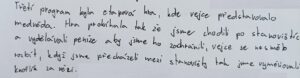 Třetí program byla etapová hra, kde vejce představovalo
medvěda. Hra probíhala tak že jsme chodili po stanovištích
a vydělávali peníze aby jsme ho zachránili, vejce se nesmělo
rozbít, když jsme přecházeli mezi stanovišty tak jsme vyměňovali
kmitík za